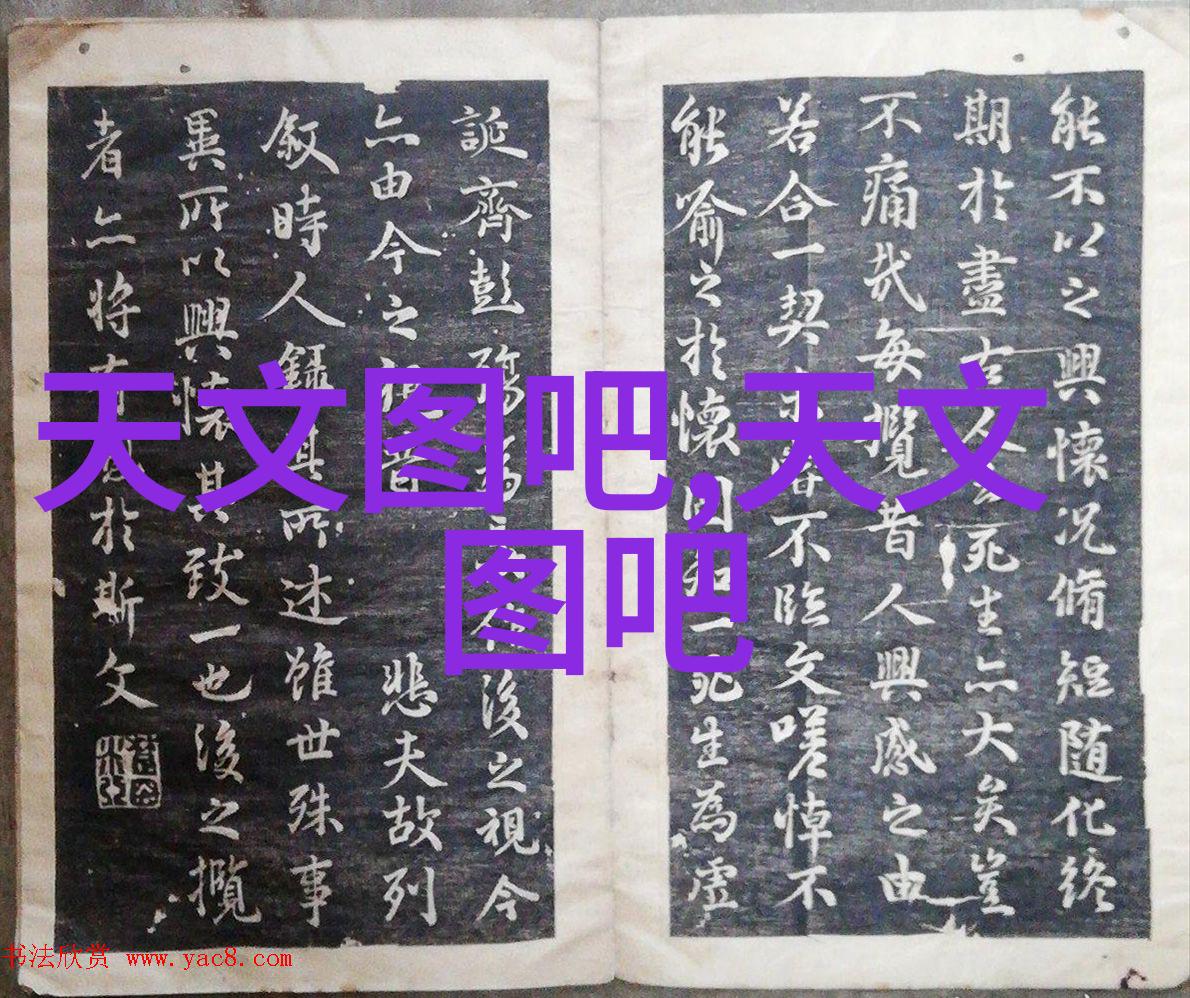 能不以之興懷况脩短随化終
期於盡古人云死生亦大矣豈
不痛哉每攬昔人興感之由
若合一契未嘗不臨文嗟悼不
能喻之於懷固知一死生為虛
誕齊彭殤為後之視今
亦由今之視昔悲夫故列
叙時人錄其所述雖世殊事
異所以興懷其致一也後之攬
者亦将有於斯文
天文图吧,天文
图吧
书法欣赏 www.yac8.com